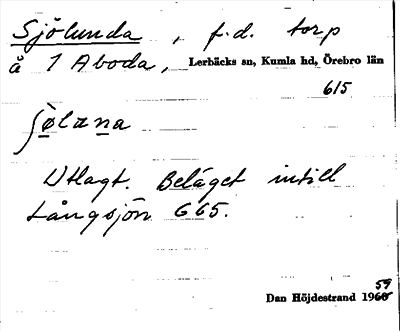 Sjölunda, f.d. torp
å 1 Aboda, Lerbäcks sn, Kumla hd, Örebro län
615
Utlagt. Beläget intill
Långsjön 665.
59
Dan Höjdestrand 1960